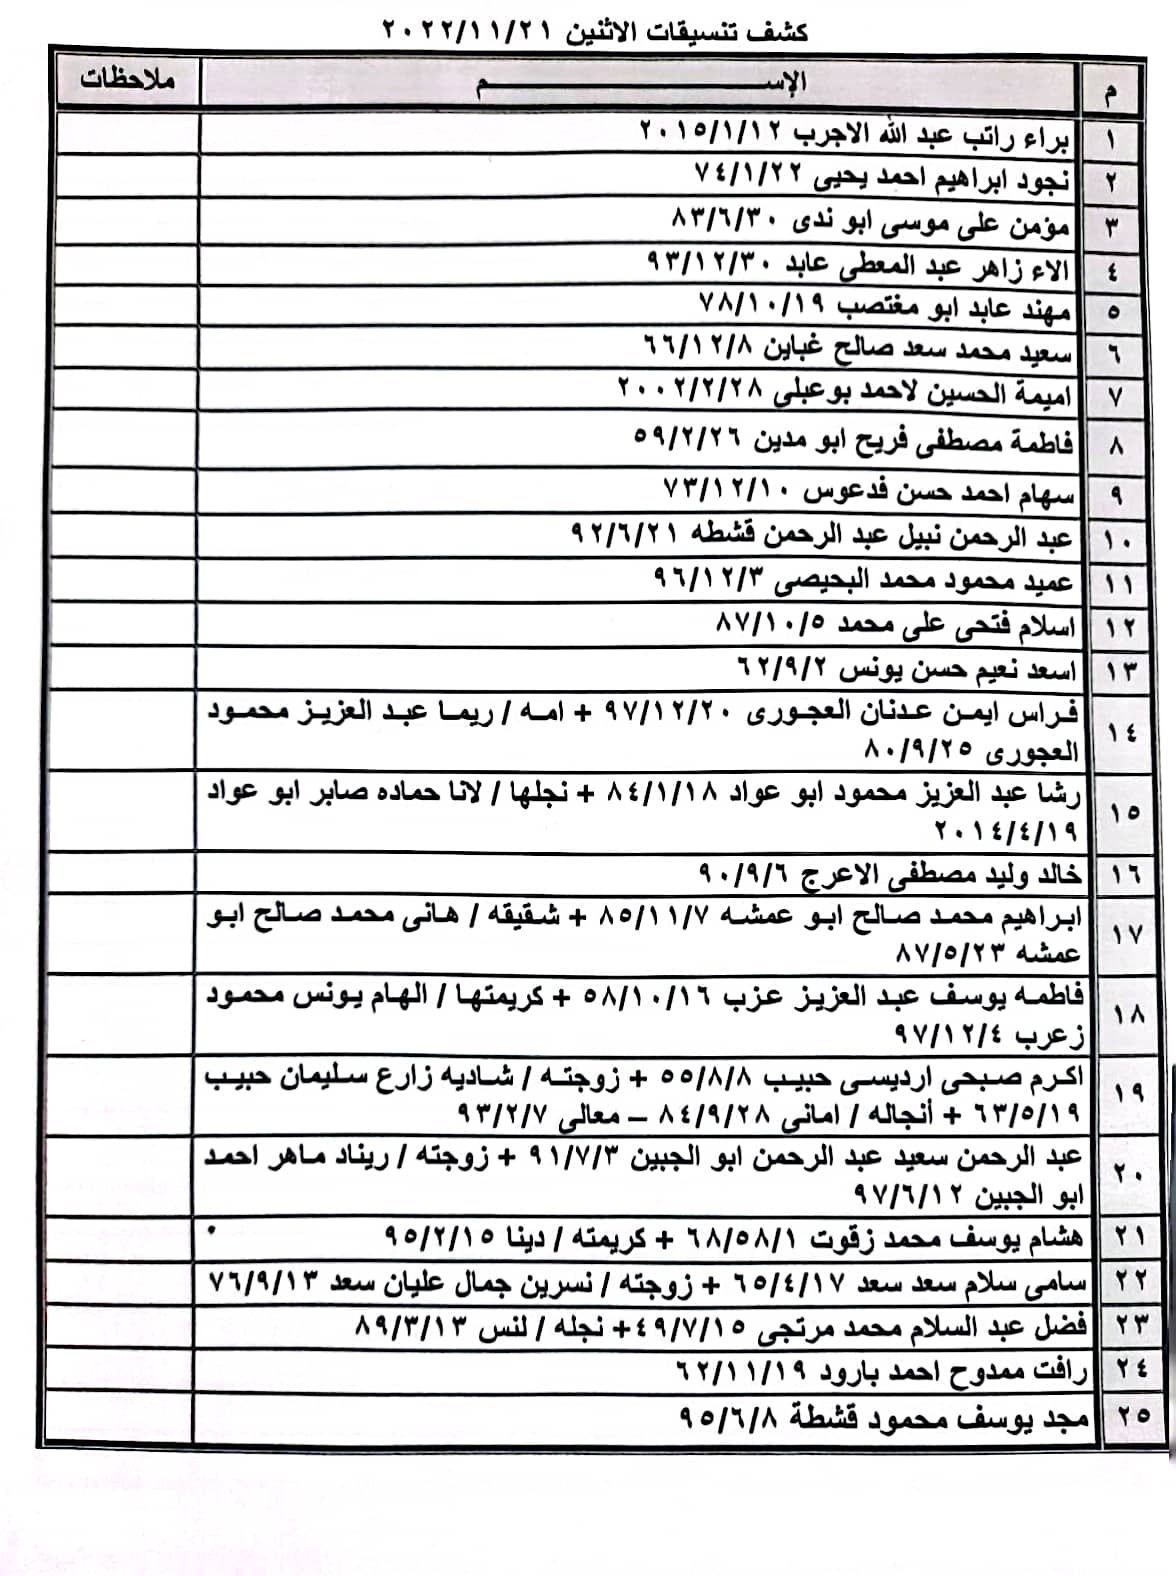 كشف تنسيقات الاثنين ٢٠٢٢/١١/٢١
م الإســـــــــم ملاحظات
١ براء راتب عبد الله الاجرب ٢٠١٥/١/١٢
٢ نجود ابراهيم احمد يحيى ٧٤/١/٢٢
٣ مؤمن على موسى ابو ندى ٨٣/٦/٣٠
٤ الاء زاهر عبد المعطى عابد ٩٣/١٢/٣٠
٥ مهند عابد ابو مغتصب ٧٨/١٠/١٩
٦ سعيد محمد سعد صالح غباين ٦٦/١٢/٨
٧ اميمة الحسين لاحمد بوعبلى ٢٠٠٢/٢/٢٨
٨ فاطمة مصطفى فريح ابو مدين ٥٩/٢/٢٦
٩ سهام احمد حسن فدعوس ٧٣/١٢/١٠
١٠ عبد الرحمن نبيل عبد الرحمن قشطه ٩٢/٦/٢١
١١ عميد محمود محمد البحيصى ٩٦/١٢/٣
١٢ اسلام فتحى على محمد ٨٧/١٠/٥
١٣ اسعد نعيم حسن يونس ٦٢/٩/٢
١٤ فراس ايمن عدنان العجورى ٩٧/١٢/٢٠ + امه / ريما عبد العزيز محمود
العجورى ٨٠/٩/٢٥
١٥ رشا عبد العزيز محمود ابو عواد ٨٤/١/١٨ + نجلها / لانا حماده صابر ابو عواد
٢٠١٤/٤/١٩
١٦ خالد وليد مصطفى الاعرج ٩٠/٩/٦
١٧ ابراهيم محمد صالح ابو عمشه ٨٥/١١/٧ + شقيقه / هانى محمد صالح ابو
عمشه ٨٧/٥/٢٣
١٨ فاطمه يوسف عبد العزيز عزب ٥٨/١٠/١٦ + كريمتها / الهام يونس محمود
زعرب ٩٧/١٢/٤
١٩ اكرم صبحى ارديسى حبيب ٥٥/٨/٨ + زوجته / شاديه زارع سليمان حبيب
٦٣/٥/١٩ + أنجاله / امانى ٨٤/٩/٢٨ – معالى ٩٣/٢/٧
٢٠ عبد الرحمن سعيد عبد الرحمن ابو الجبين ٩١/٧/٣ + زوجته / ريناد ماهر احمد
ابو الجبين ٩٧/٦/١٢
٢١ هشام يوسف محمد زقوت ٦٨/٥٨/١ + كريمته / دينا ٩٥/٢/١٥
٢٢ سامى سلام سعد سعد ٦٥/٤/١٧ + زوجته / نسرين جمال عليان سعد ٧٦/٩/١٣
٢٣ فضل عبد السلام محمد مرتجى ٤٩/٧/١٥+ نجله / لنس ٨٩/٣/١٣
٢٤ رافت ممدوح احمد بارود ٦٢/١١/١٩
٢٥ مجد يوسف محمود قشطة ٩٥/٦/٨